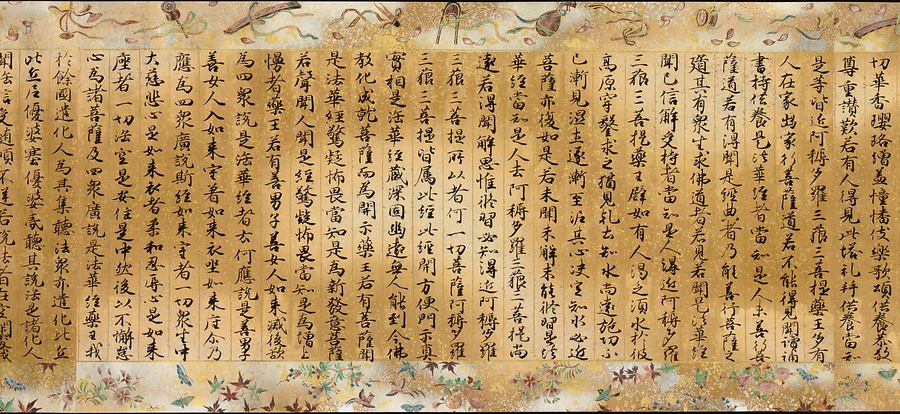 切華香瓔珞繒蓋幢幡伎樂歌頌供養恭敬
尊重讚歎若有人得見此塔礼拜供養當知
是等皆近阿耨多羅三藐三菩提藥王多有
人在家出家行菩薩道若不能得見聞讀誦
書持供養是法華經者當知是人未善行菩
薩道若有得聞是經典者乃能善行菩薩之
道其有衆生求佛道者若見若聞是法華經
聞已信解受持者當知是人得近阿耨多羅
三藐三菩提藥王譬如有人渴乏須水於彼
高原穿鑿求之猶見乾土知水尚遠施功不
已漸見濕土遂漸至泥其心决定知水必近
菩薩亦復如是若未聞未解未能修習是法
華經當知是人去阿耨多羅三藐三菩提尚
遠若得聞解思惟修習必知得近阿耨多羅
三藐三菩提所以者何一切菩薩阿耨多羅
三藐三菩提皆屬此經此經開方便門示真
實相是法華經藏深固幽遠無人能到今佛
教化成就菩薩而為開示藥王若有菩薩聞
是法華經驚疑怖畏當知是為新發意菩薩
若聲聞人聞是經驚疑怖畏當知是為增上
慢者藥王若有善男子善女人如來滅後欲
為四衆說是法華經者云何應說是善男子
善女人入如來室著如來衣坐如來座尒乃
應為四衆廣說斯經如來室者一切衆生中
大慈悲心是如來衣者柔和忍辱心是如來
座者一切法空是安住是中然後以不懈怠
心為諸菩薩及四衆廣說是法華經藥王我
於餘國遣化人為其集聽法衆亦遣化比丘
比丘尼優婆塞優婆夷聽其說法是諸化人
聞法信受隨順不逆若說法者在空閑處我